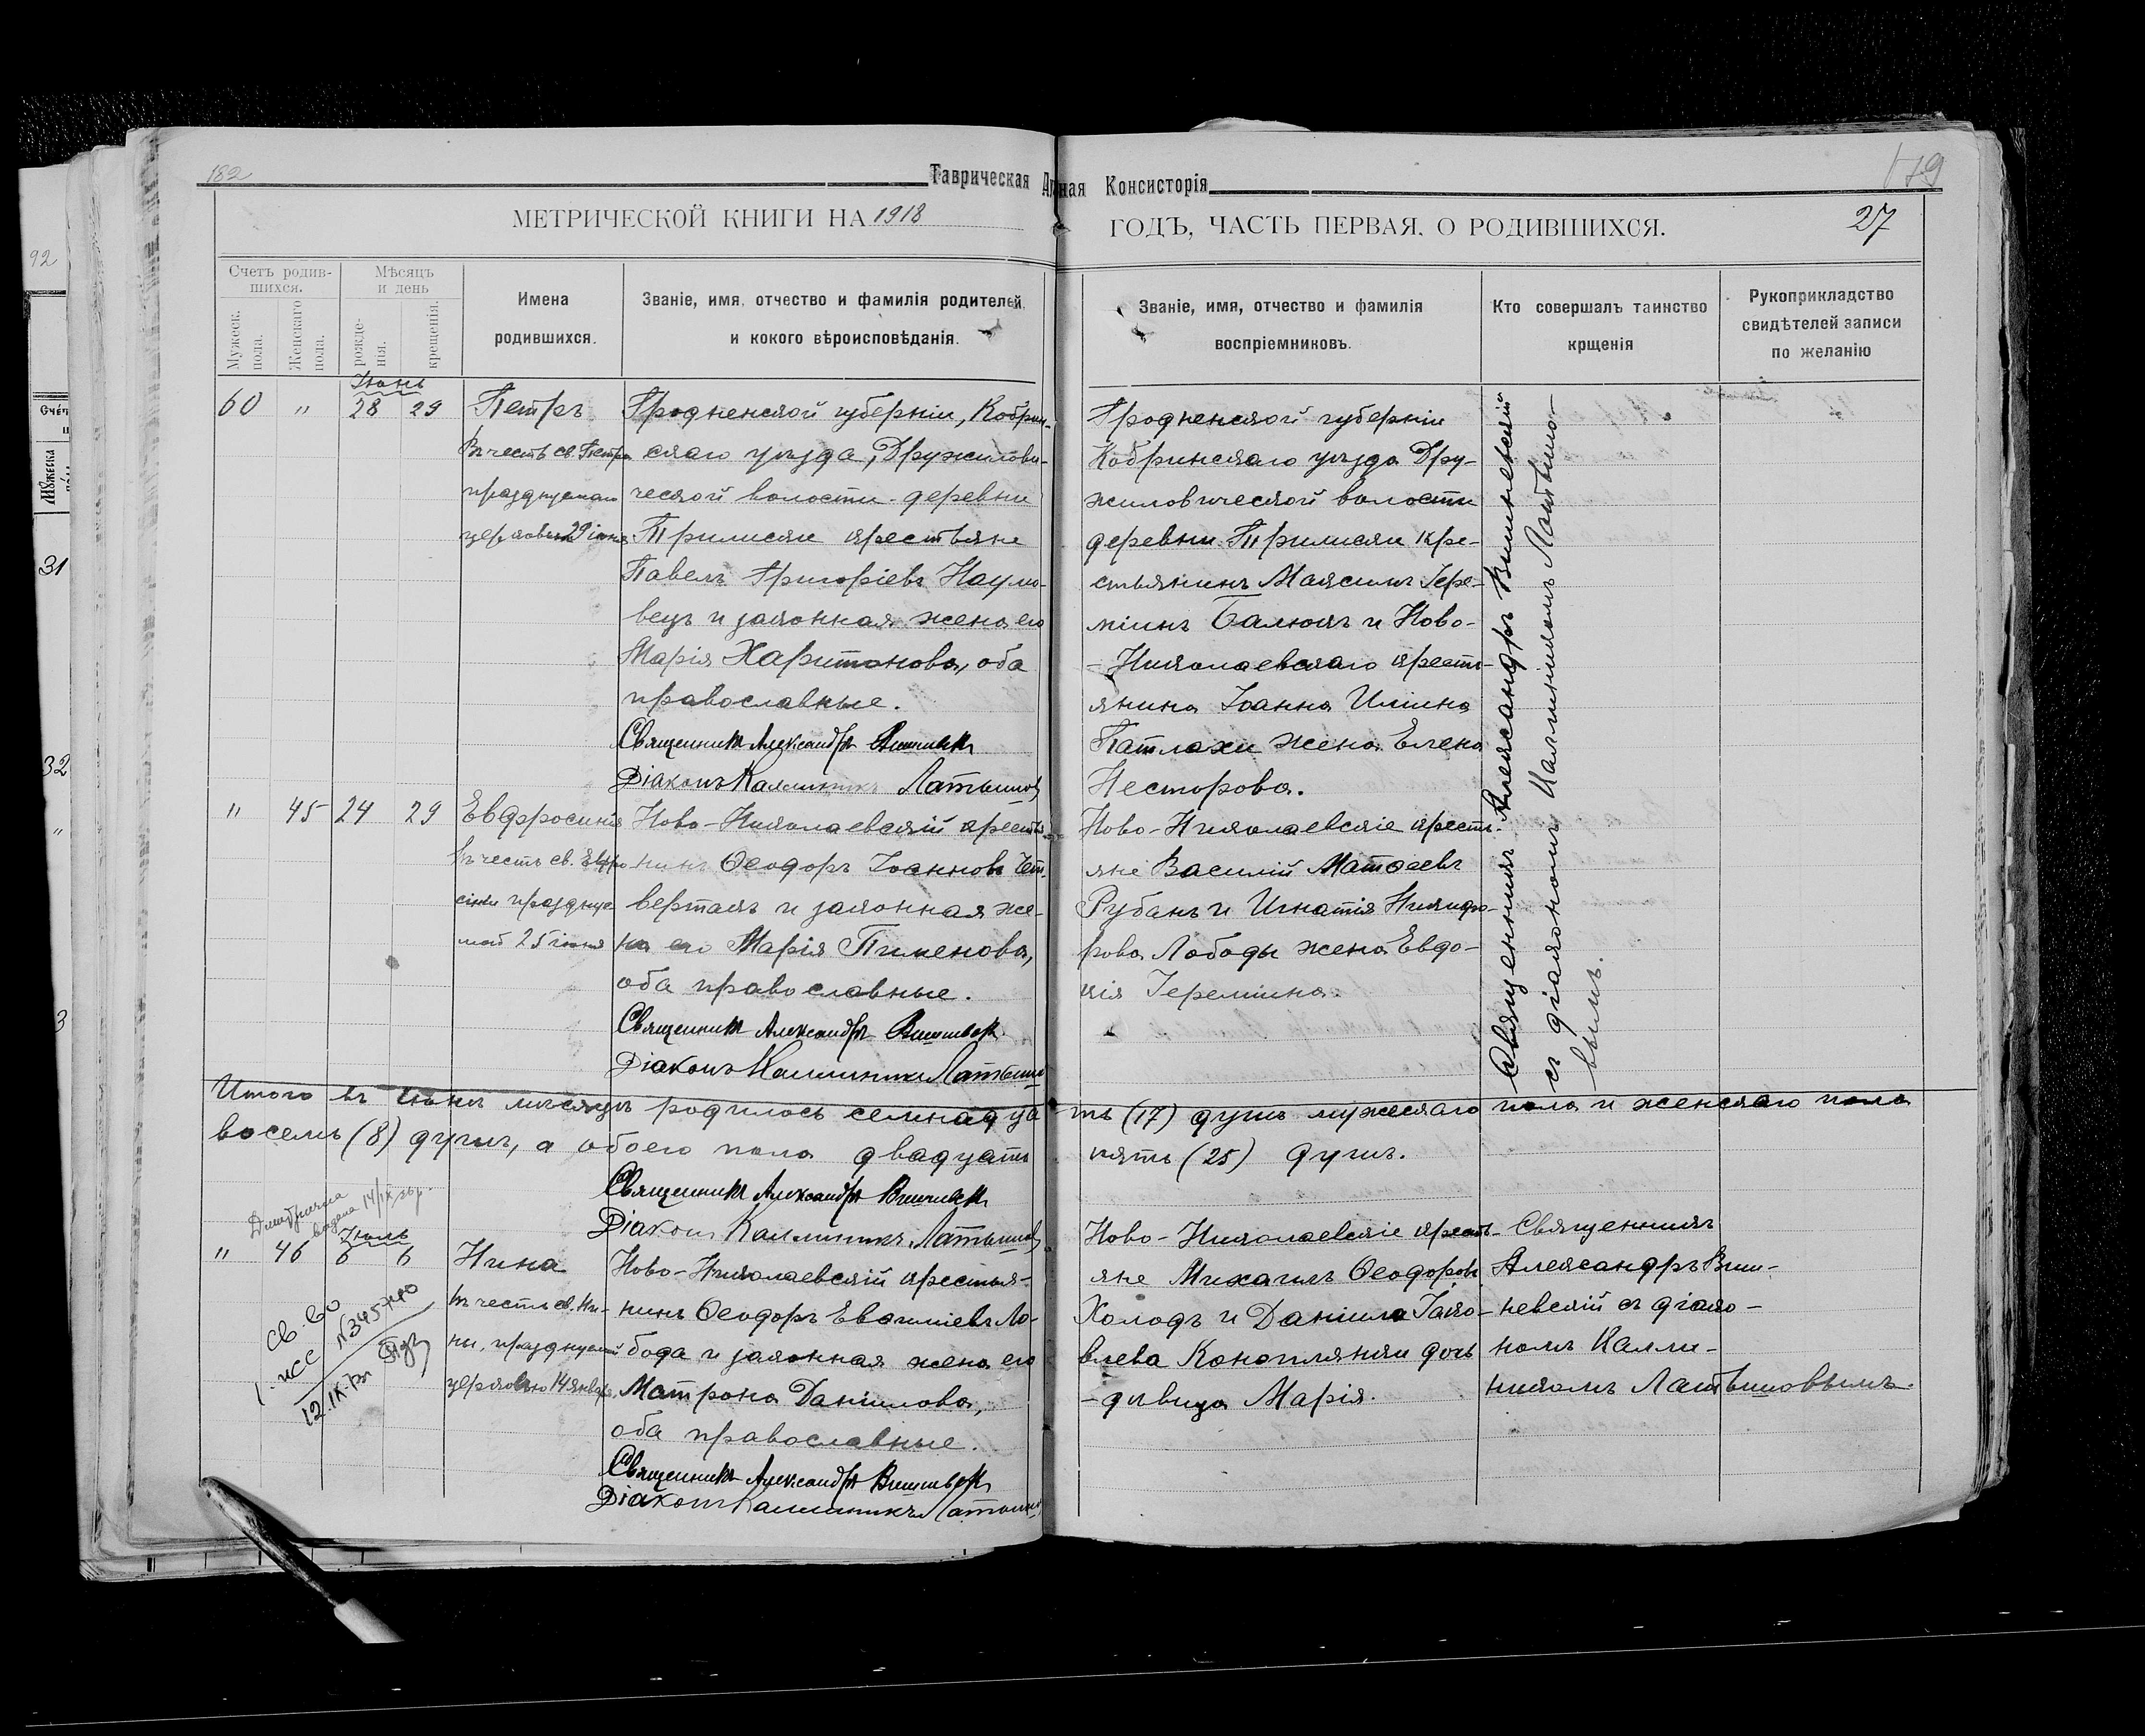 182
Таврическая
ная Консисторія
179
МЕТРИЧЕСКОЙ КНИГИ НА 1918
ГОДЪ, ЧАСТЬ ПЕРВАЯ, О РОДИВШИХСЯ.
27
92
Счетъ родив-
шихся.
Мужеск.
пола.
Женскаго
пола.
Мѣсяцъ
и день
рожде-
нія.
крещенія.
Имена
родившихся.
Званіе, имя, отчество и фамилія родителей
и кокого вѣроисповѣданія.
Званіе, имя, отчество и фамилія
воспріемниковъ.
Кто совершалъ таинство
крщенія
Рукоприкладство
свидѣтелей записи
по желанію
31
32
3
Іюнь
60 " 28 29
Петръ
Въ честь св. Петра
празднуемаго
церковью 29 іюня
Гродненской губерніи, Кобрин-
скаго уѣзда, Дружилови-
ческой волости деревни
Прилиски крестьяне
Павелъ Григоріевъ Наумо-
вецъ и законная жена его
Марія Харитонова, оба
православные.
Священникъ Александръ
Діаконъ Каллиникъ Латышовъ
Гродненской губерніи
Кобринскаго уѣзда Дру-
жиловической волости
деревни Прилиски кре-
стьянинъ Максимъ Іере-
міинъ Балюкъ и Ново-
-Николаевскаго кресть-
янина Іоанна Иліина
Патлахи жена Елена
Несторова.
Священникъ Александръ Вишневскій
съ діакономъ Каллиникомъ Латышо-
вымъ.
" 45 24 29
Евфросинія
Въ честь св. Евфро
синіи празднуе
мой 25 іюня
Ново-Николаевскій крестья-
нинъ Ѳеодоръ Іоанновъ Чет-
вертакъ и законная же-
на его Марія Пименова,
оба православные.
Священникъ Александръ
Діаконъ Каллиникъ Латышо
Ново-Николаевскіе кресть-
яне Василій Матѳеевъ
Рубанъ и Игнатія Никифо-
рова Лободы жена Евдо-
кія Іереміина.
Итого въ іюнѣ мѣсяцѣ родилось семнадца
ть (17) душъ мужескаго пола и женскаго пола
восемь (8) душъ, а обоего пола двадцать
пять (25) душъ.
Священникъ Александръ
Діаконъ Каллиникъ Латышовъ
выдана 14/IX
Іюль
" 46 6 6
Св-во
12.IX
Нина
въ честь св. Ни-
ны, празднуемой
церковью 14 января
Ново-Николаевскій крестья-
нинъ Ѳеодоръ Евѳиміевъ Ло-
бода и законная жена его
Матрона Даніилова,
оба православные.
Священникъ Александръ
Діаконъ Каллиникъ
Ново-Николаевскіе кресть-
яне Михаилъ Ѳеодоровъ
Холодъ и Даніила Іако-
влева Коноплянки дочь
-дѣвица Марія.
Священникъ
Александръ Виш-
невскій съ діако-
номъ Калли-
никомъ Латышовымъ.